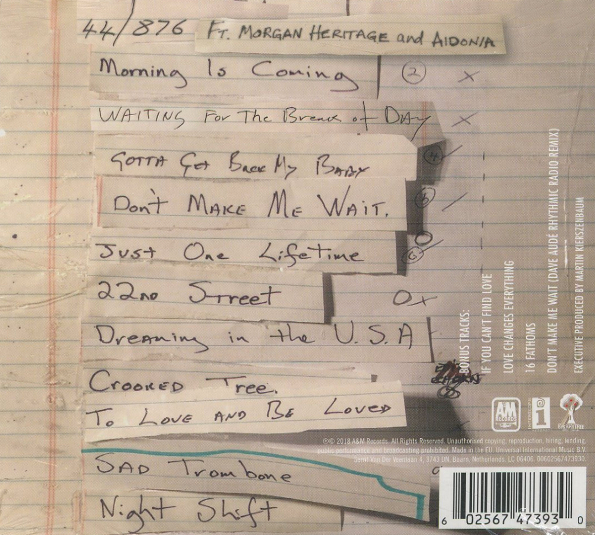 44/876 Ft. MORGAN HERITAGE and AIDONIA
Morning Is Coming
2 x
WAITING For The Break of DAY x
GOTTA GET BACK MY BABY
DON'T MAKE ME WAIT.
JUST One Lifetime
22nd Street
Ox
Dreaming in the U.S.A
CROOKED TREE.
TO LOVE AND BE LOVED
SAD Trombone
Night Shift
BONUS TRACKS:
IF YOU CAN'T FIND LOVE
LOVE CHANGES EVERYTHING
16 FATHOMS
DON'T MAKE ME WAIT (DAVE AUDÉ RHYTHMIC RADIO REMIX)
EXECUTIVE PRODUCED BY MARTIN KIERSZENBAUM
A&M RECORDS
i
℗© 2018 A&M Records. All Rights Reserved. Unauthorised copying, reproduction, hiring, lending
public performance and broadcasting prohibited. Made in the EU. Universal International Music B.V.
6 02567 47393 0